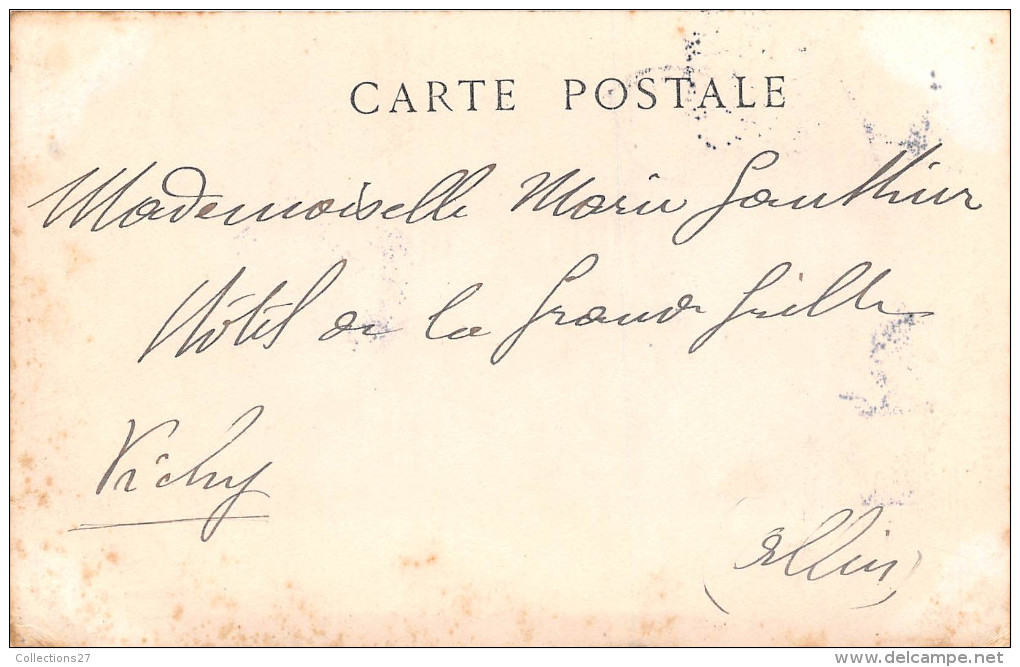 CARTE POSTALE
Mademoiselle Marie Gauthier
Hôtel de la Grande Grille
Vichy
(Allier)
Collections27
delcampe.net